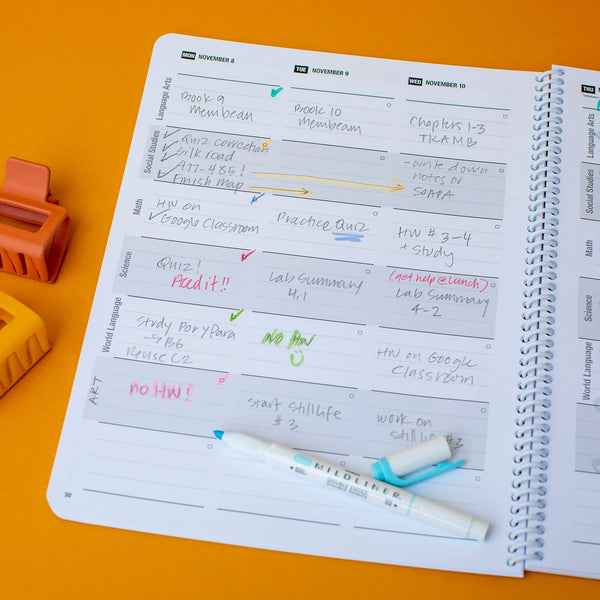 MON NOVEMBER 8
TUE NOVEMBER 9
WED NOVEMBER 10
THU
Language Arts
Book 9
Membean
Book 10
Membean
Chapters 1-3
TKAMB
Language Arts
Social Studies
Quiz correction
Silk road
477-485!
Finish map
-write down
notes or
SOAPA
Social Studies
Math
HW on
Google Classroom
Practice Quiz
HW # 3-4
+ study
Math
Science
Quiz!
Aced it!!
Lab Summary
4.1
(got help @ lunch)
Lab Summary
4-2
Science
World Language
Study Por y Para
B6
C2
NO HW
HW on Google
Classroom
World Language
ART
no HW!
Start Still life
# 3
work on
still life #3
MILDLINER
30